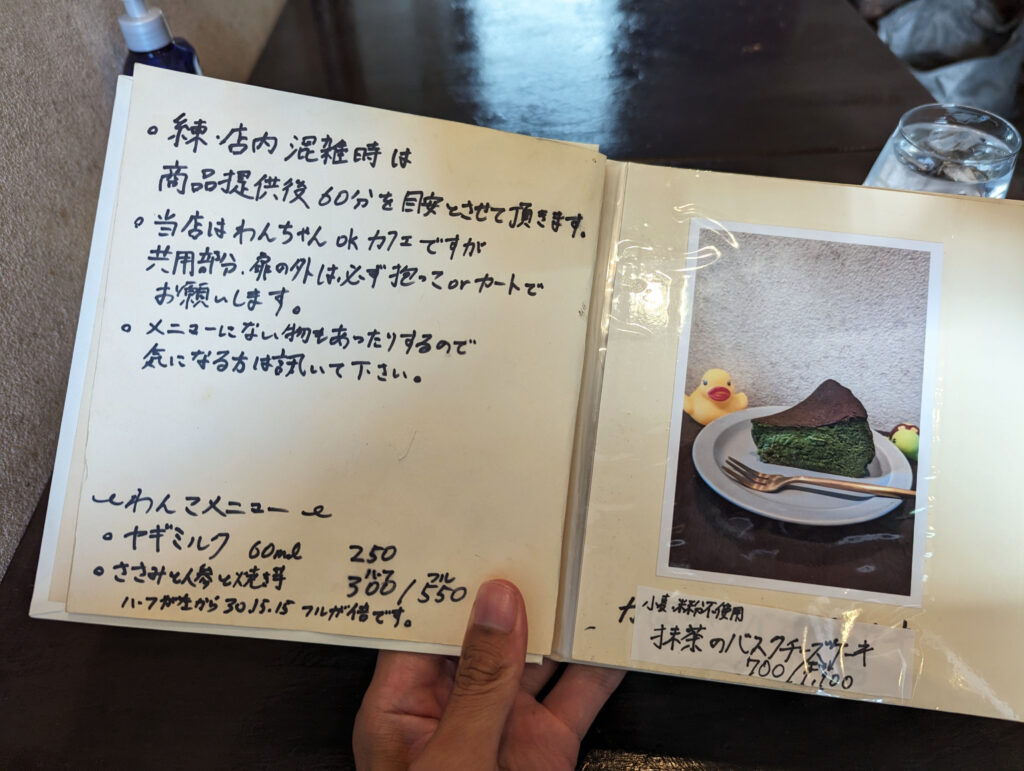 。練・店内 混雑時は
商品提供後 60分を目安とさせて頂きます。
。当店はわんちゃん ok カフェですが
共用部分、扉の外は必ず抱っこ or カートで
お願いします。
。メニューにない物もあったりするので
気になる方は訊いて下さい。
わんこメニュー
。ヤギミルク 60ml 250
。ささみと人参と焼き芋 ハーフ300/フル550
ハーフが左から30.15.15 フルが倍です。
小麦・米粉不使用
抹茶のバスクチーズケーキ
700/1,100